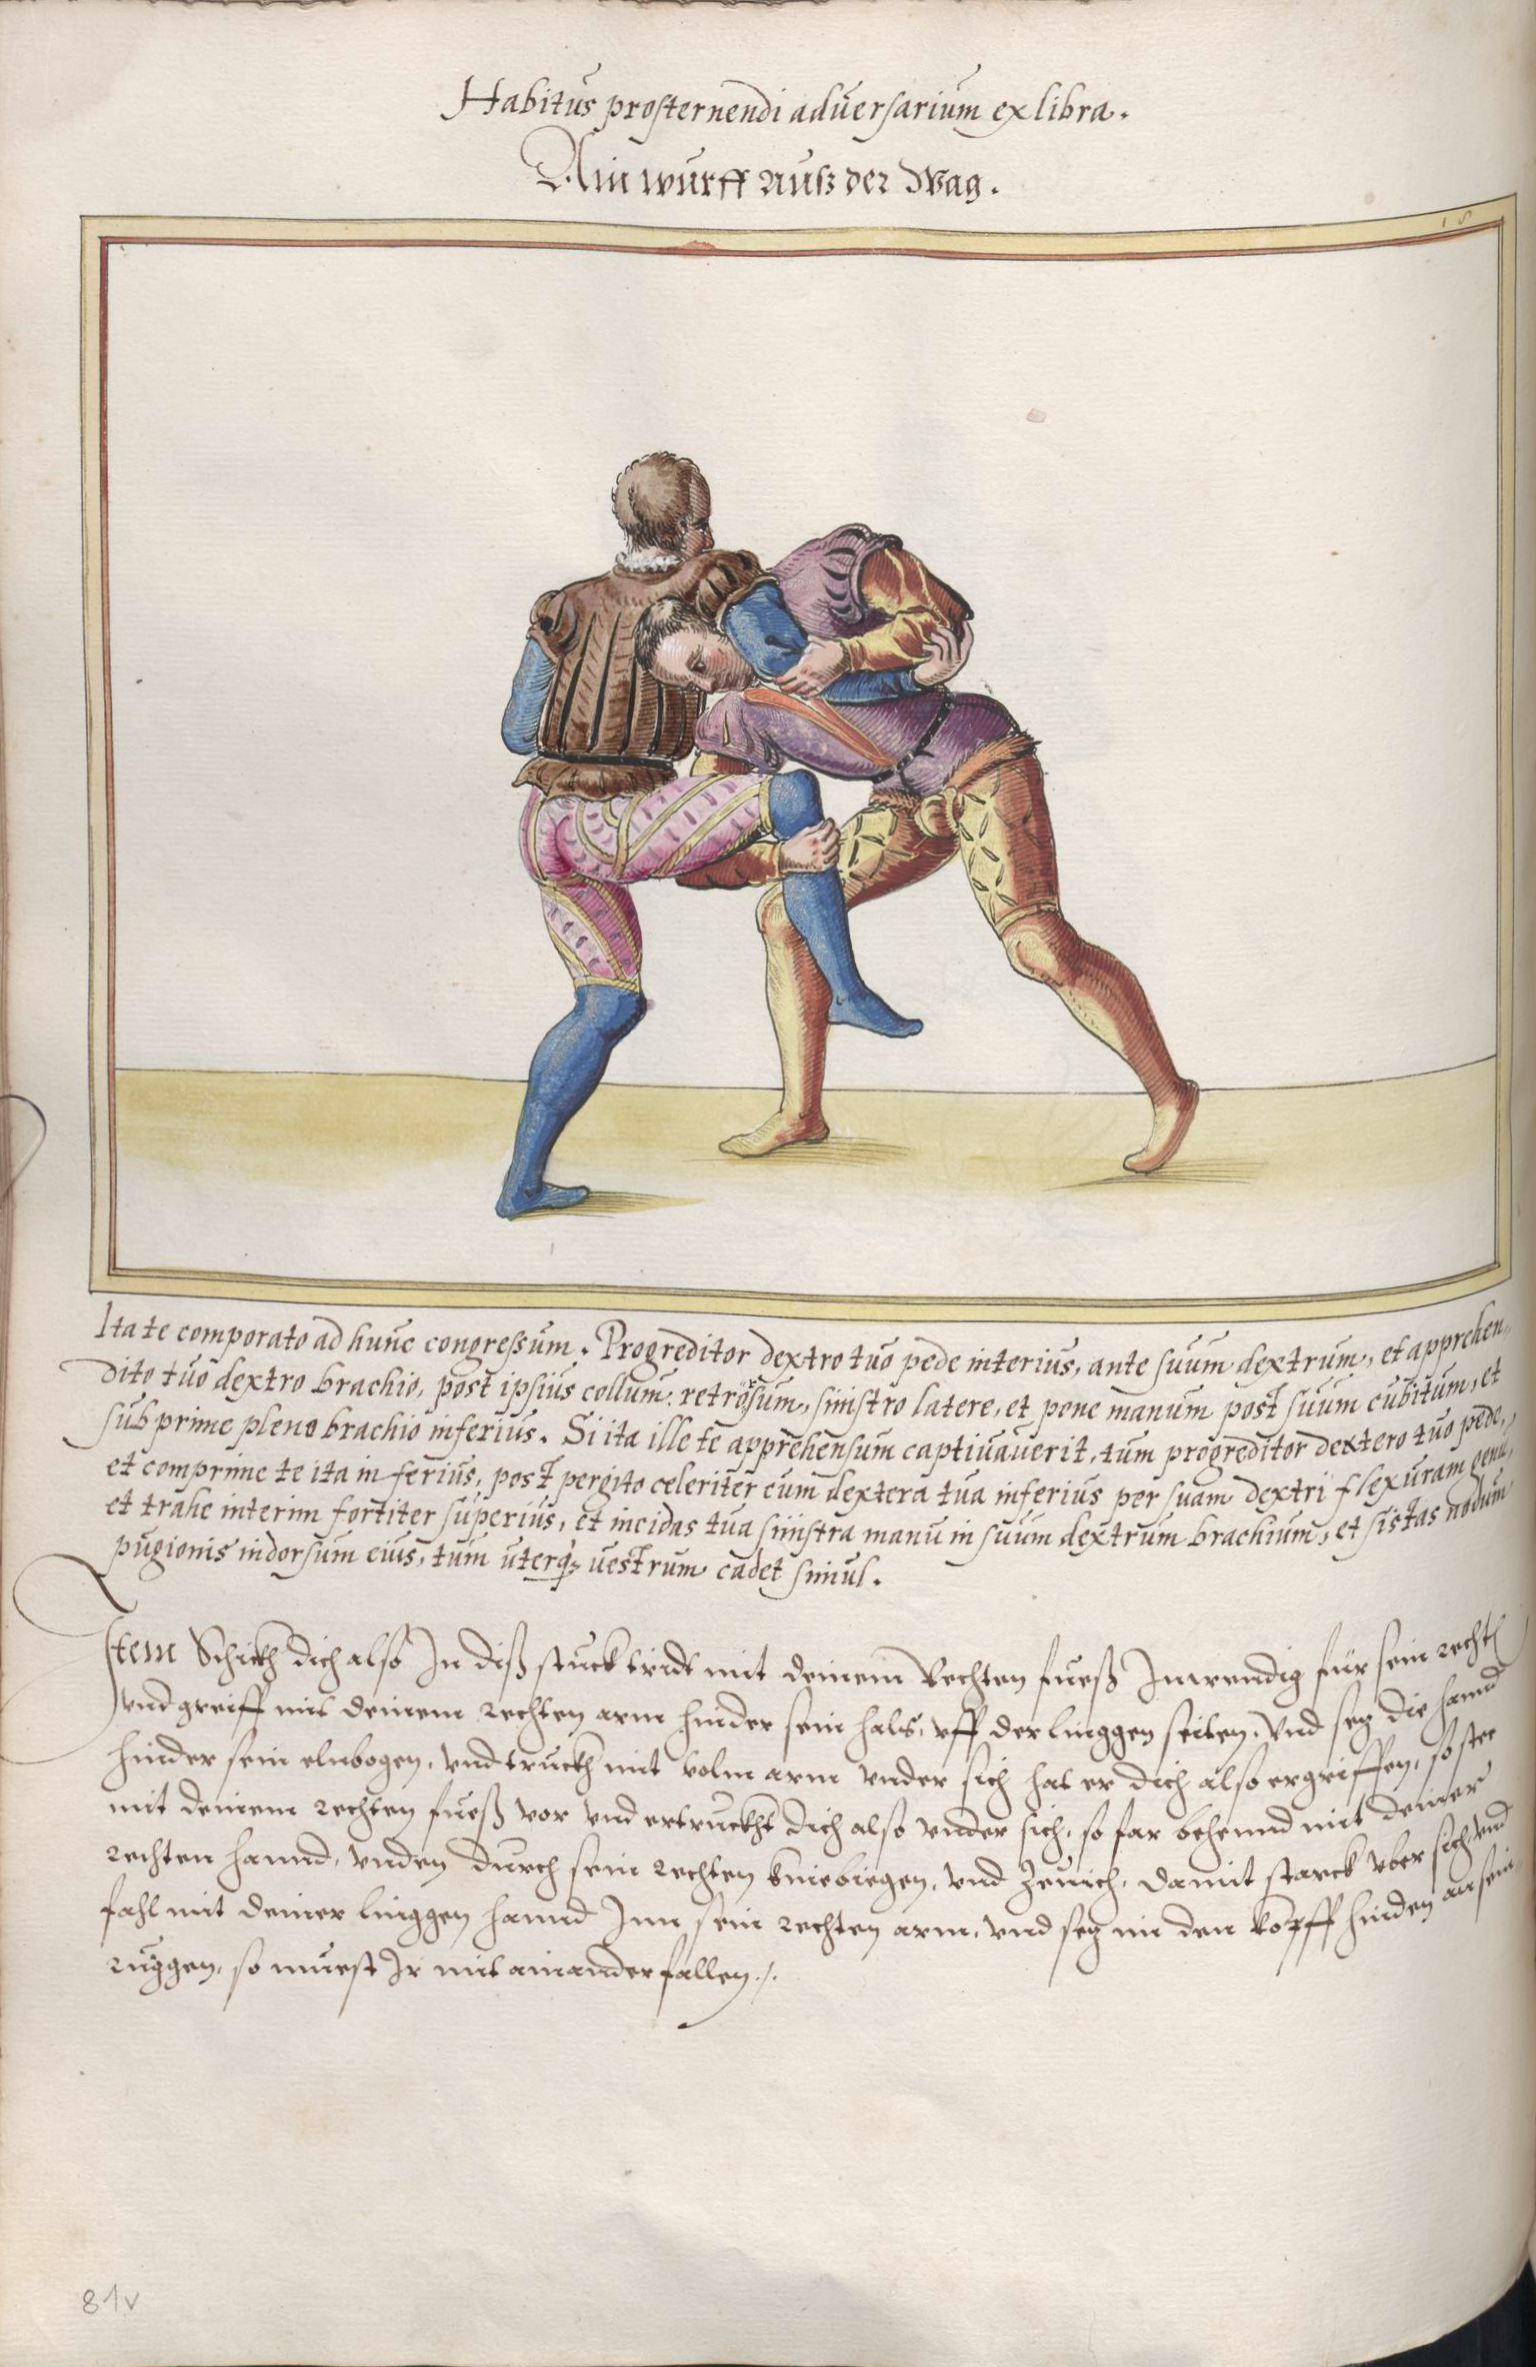 Habitus prosternendi adversarium ex libra.
Ain wurff auß der Wag.
18
Ita te comporato ad hunc congressum. Progreditor dextro tuo pede interius, ante suum dextrum, et apprehen„
dito tuo dextro brachio, post ipsius collum retrorsum, sinistro latere, et pone manum post suum cubitum, et
sub prime pleno brachio inferius. Si ita ille te apprehensum captivaverit, tum progreditor dextero tuo pede,
et comprime te ita inferius, post pergito celeriter cum dextera tua inferius per suam dextri flexuram genu,
et trahe interim fortiter superius, et incidas tua sinistra manu in suum dextrum brachium, et sistas nodum
pugionis in dorsum eius, tum uterq; vestrum cadet simul.
Item Schickh dich also In diß stuck tridt mit deinem Rechten fueß Inwendig für sein recht
vnd greiff mit deinem rechten arm hinder sein hals, vff der linggen seiten, vnd setz die hannd
hinder sein elnbogen, vnd truckh mit volm arm vnder sich hat er dich also ergriffen, so stee
mit deinem rechten fueß vor vnd ertruckht dich also vnder sich, so far behennd mit deiner
rechten hannd, vnden durch sein rechten kniebiegen, vnd zeuich, damit starck vber sich, vnd
fahl mit deiner linggen hannd Inn sein rechten arm, vnd setz im den kopff hinden an sein
ruggen, so muest Ir mit ainander fallen ./.
81v